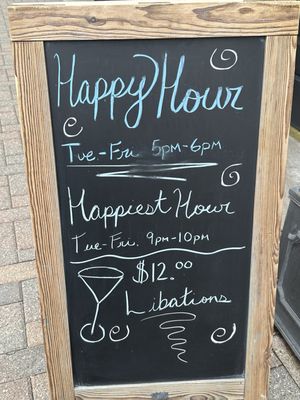 Happy Hour
Tue-Fri 5pm-6pm
Happiest Hour
Tue-Fri. 9pm-10pm
$12.00
Libations